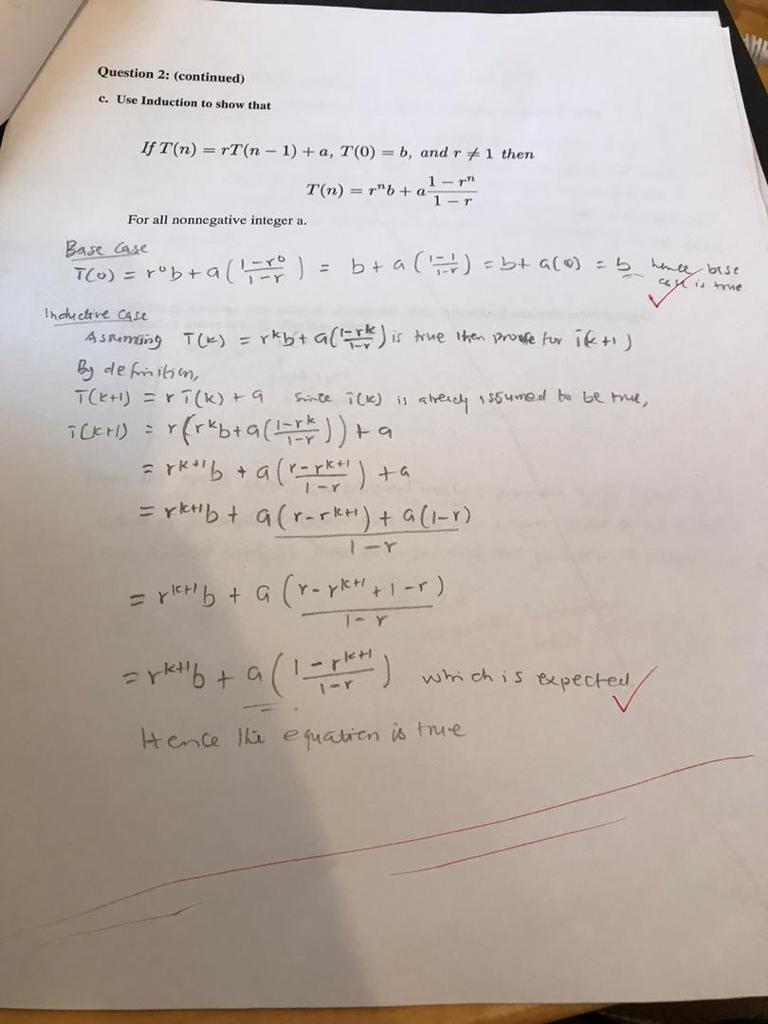 Question 2: (continued)
c. Use Induction to show that
If T(n) = rT(n − 1) + a, T(0) = b, and r ≠ 1 then
T(n) = rⁿb + a (1 − rⁿ)/(1 − r)
For all nonnegative integer a.
Base Case
T(0) = r⁰b + a((1−r⁰)/(1−r)) = b + a((1−1)/(1−r)) = b + a(0) = b hence base
case is true
Inductive Case
Assuming T(k) = rᵏb + a((1−rᵏ)/(1−r)) is true then prove for T(k+1)
By definition,
T(k+1) = r T(k) + a since T(k) is already assumed to be true,
T(k+1) = r(rᵏb + a((1−rᵏ)/(1−r))) + a
= rᵏ⁺¹b + a((r−rᵏ⁺¹)/(1−r)) + a
= rᵏ⁺¹b + (a(r−rᵏ⁺¹) + a(1−r))/(1−r)
= rᵏ⁺¹b + a (r−rᵏ⁺¹+1−r)/(1−r)
= rᵏ⁺¹b + a((1−rᵏ⁺¹)/(1−r)) which is expected
Hence the equation is true